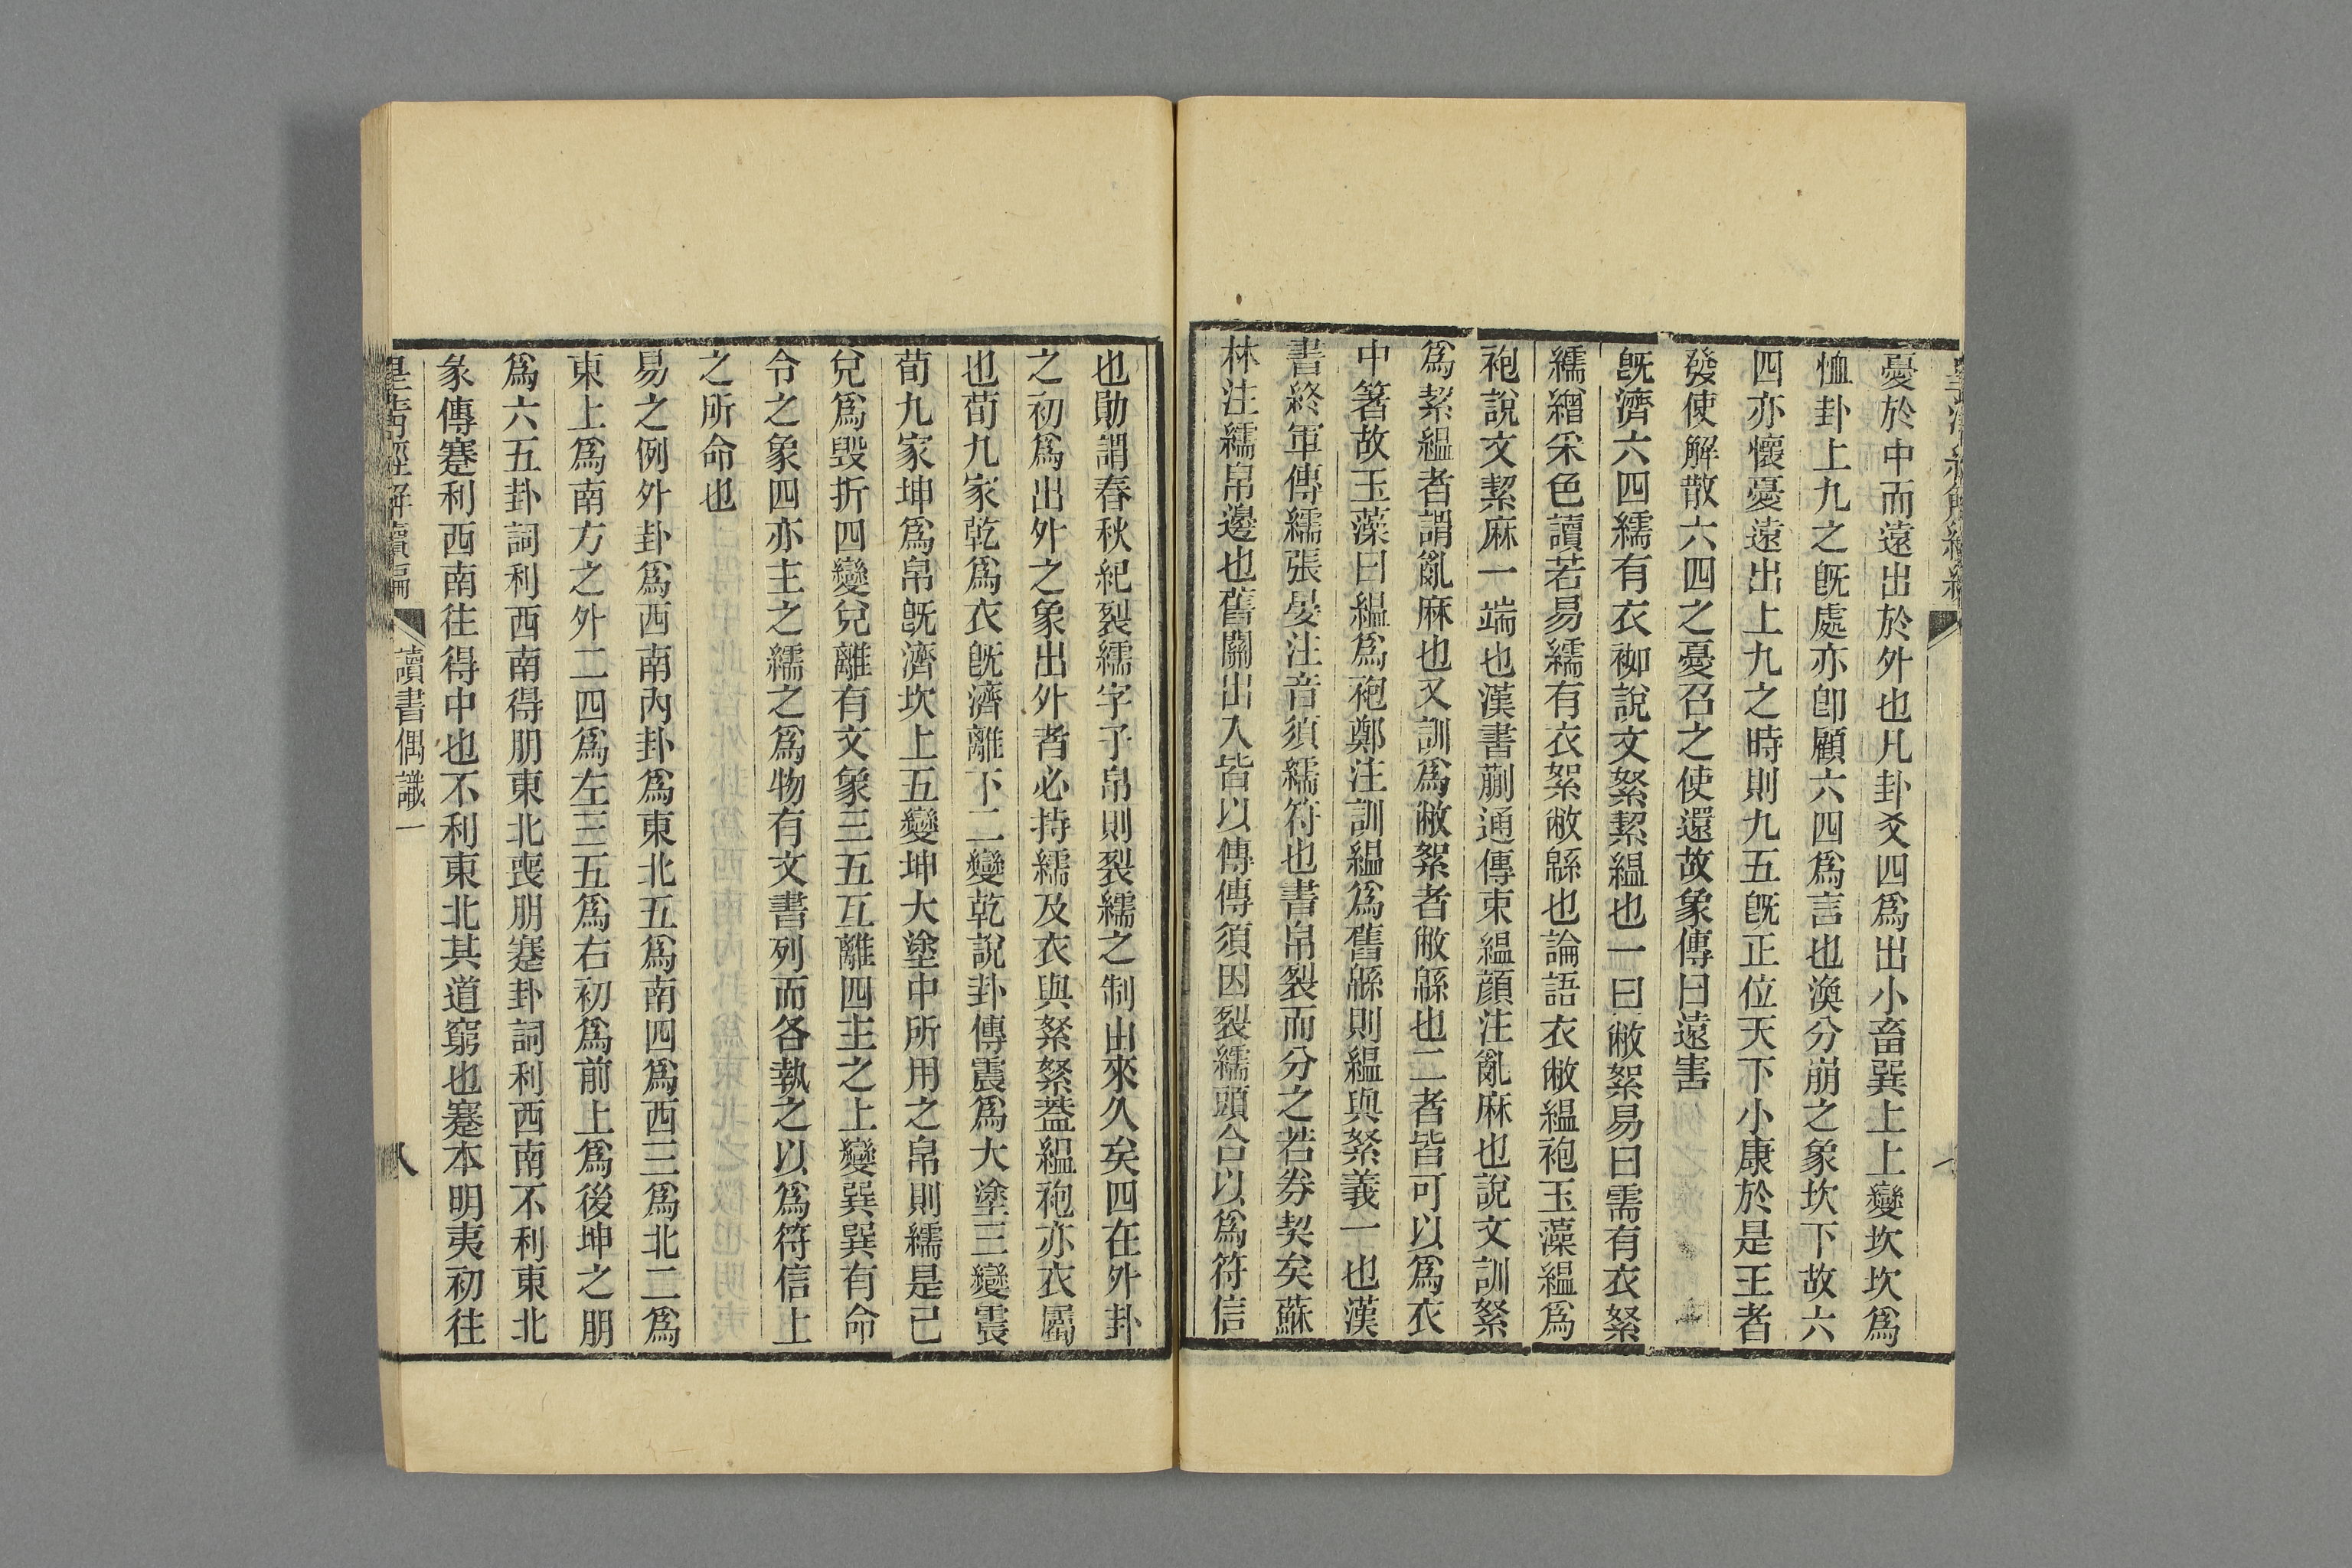 憂於中而遠出於外也凡卦爻四爲出小畜巽上上變坎坎爲
恤卦上九之旣處亦卽顧六四爲言也渙分崩之象坎下故六
四亦懷憂遠出上九之時則九五旣正位天下小康於是王者
發使解散六四之憂召之使還故象傳曰遠害
旣濟六四繻有衣袽說文絮絜縕也一曰敝絮易曰需有衣絮
繻繒采色讀若易繻有衣絮敝緜也論語衣敝縕袍玉藻縕爲
袍說文絜麻一端也漢書蒯通傳束縕顔注亂麻也說文訓絮
爲絜縕者謂亂麻也又訓爲敝絮者敝緜也二者皆可以爲衣
中箸故玉藻曰縕爲袍鄭注訓縕爲舊緜則縕與絮義一也漢
書終軍傳繻張晏注音須繻符也書帛裂而分之若券契矣蘇
林注繻帛邊也舊關出入皆以傳傳須因裂繻頭合以爲符信
也勛謂春秋紀裂繻字子帛則裂繻之制由來久矣四在外卦
之初爲出外之象出外者必持繻及衣與絮絮葢縕袍亦衣屬
也荀九家乾爲衣旣濟離下二變乾說卦傳震爲大塗三變震
荀九家坤爲帛旣濟坎上五變坤大塗中所用之帛則繻是已
兌爲毀折四變兌離有文象三五互離四主之上變巽巽有命
令之象四亦主之繻之爲物有文書列而各執之以爲符信上
之所命也
易之例外卦爲西南內卦爲東北五爲南四爲西三爲北二爲
東上爲南方之外二四爲左三五爲右初爲前上爲後坤之朋
爲六五卦詞利西南得朋東北喪朋蹇卦詞利西南不利東北
彖傳蹇利西南往得中也不利東北其道窮也蹇本明夷初往
皇淸經解續編 讀書偶識一 八